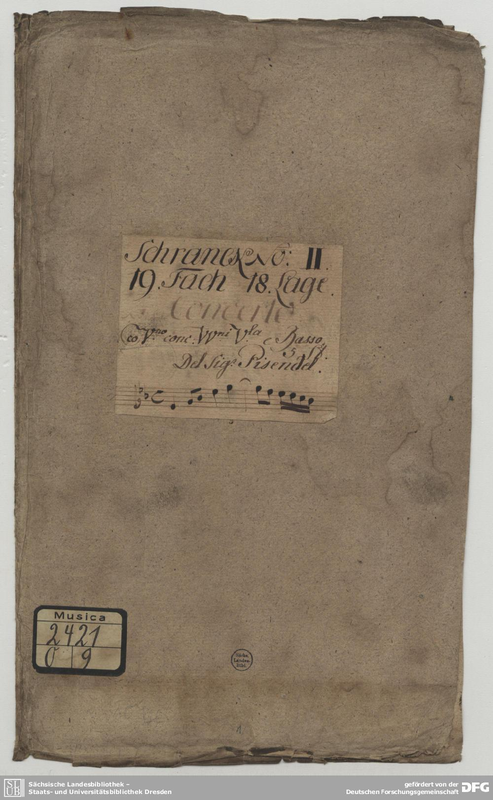 Schranck No: II.
19. Fach 18. Lage.
Concerto
co VVno conc: VVni Vla e Basso
Del Sigr Pisendel.
Musica
2421
O 9
SLUB
Sächsische Landesbibliothek –
Staats- und Universitätsbibliothek Dresden
gefördert von der
Deutschen Forschungsgemeinschaft DFG